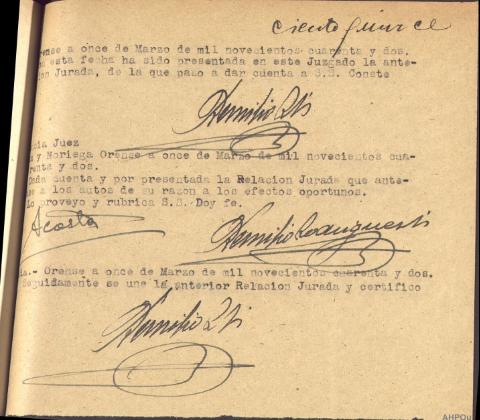 Ciento quince
rense a once de Marzo de mil novecientos cuarenta y dos.
n esta fecha ha sido presentada en este Juzgado la ante-
ion Jurada, de la que paso a dar cuenta a S.S. Conste
ia Juez
y Noriega Orense a once de Marzo de mil novecientos cua-
renta y dos.
Dada cuenta y por presentada la Relacion Jurada que ante-
se a los autos de su razon a los efectos oportunos.
lo proveyo y rubrica S.S. Doy fe.
Acosta
ia.- Orense a once de Marzo de mil novecientos cuarenta y dos.
Seguidamente se une la anterior Relacion Jurada y certifico
AHPOu